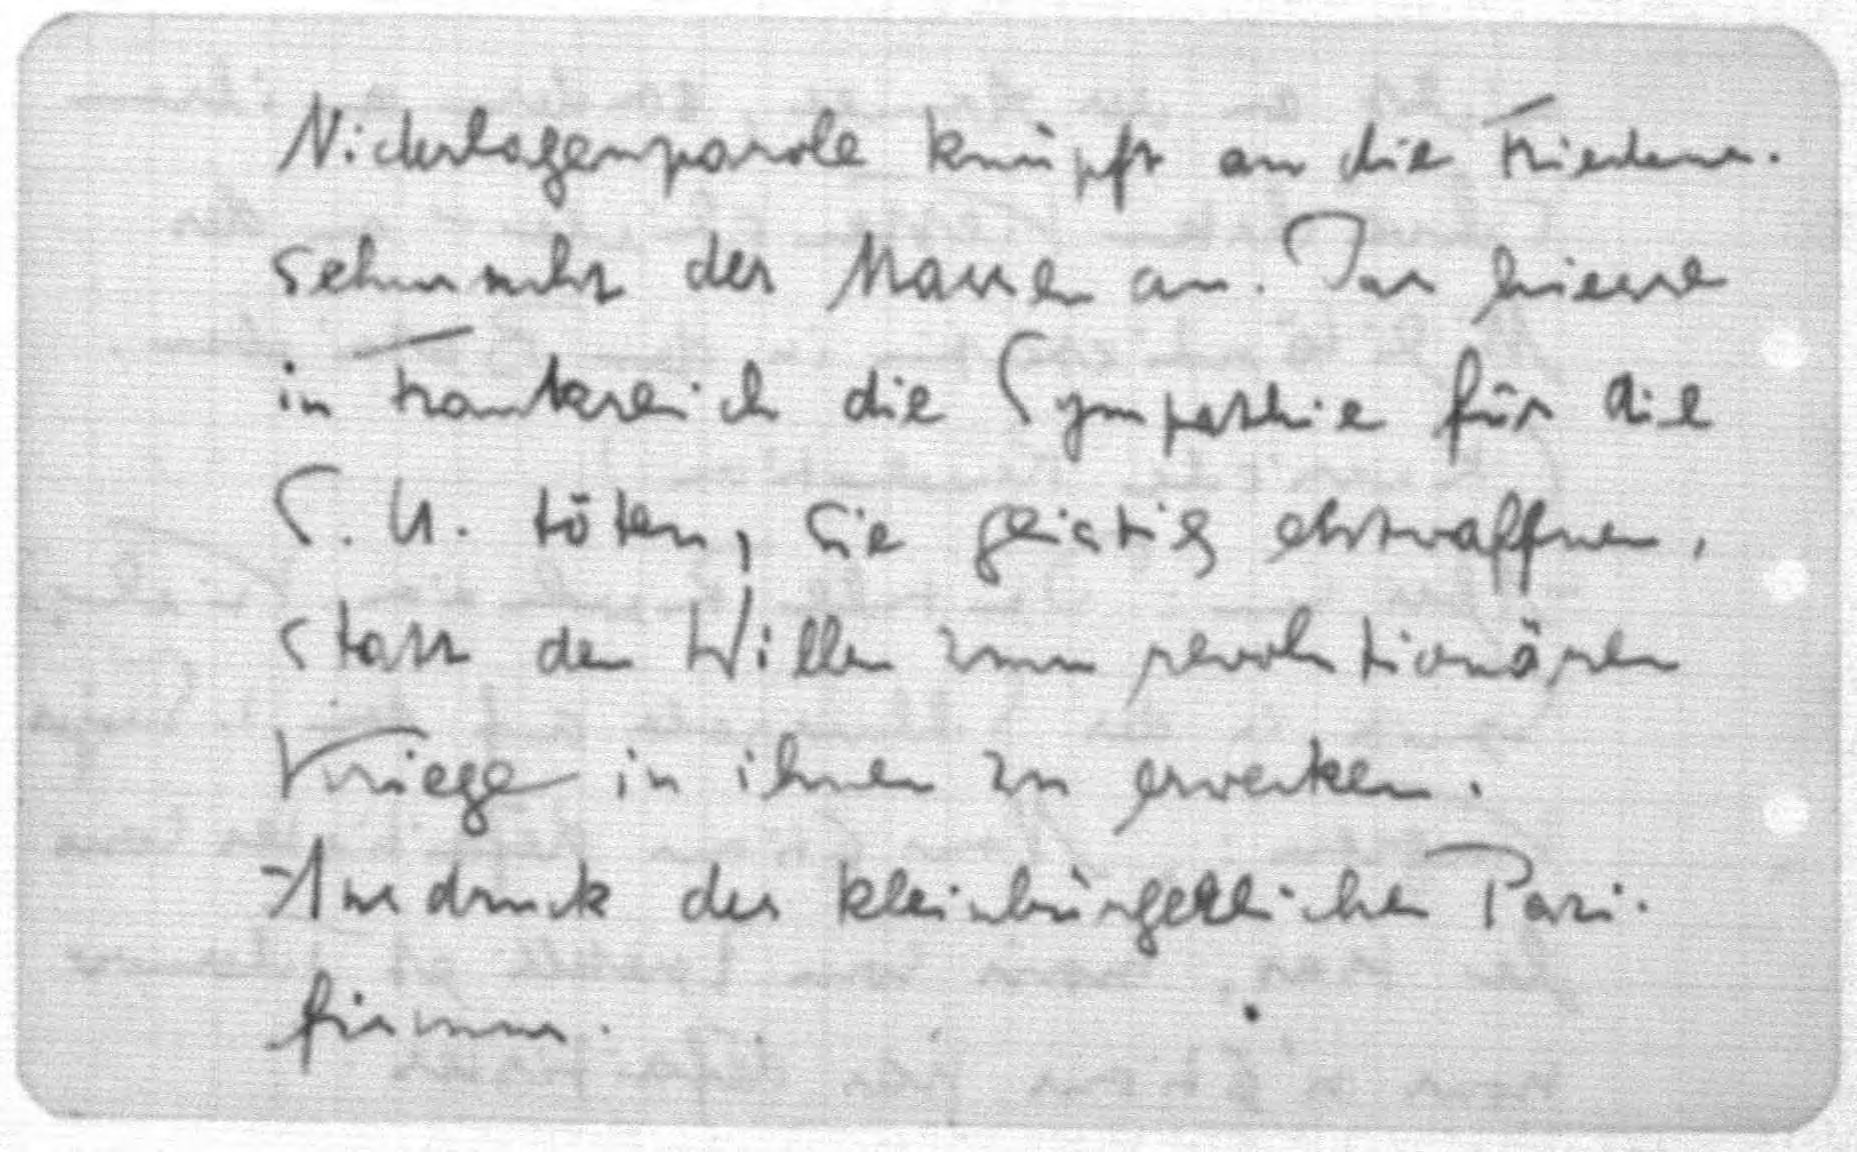 Niederlagenparole knüpft an die Friedens-
sehnsucht der Massen an. Das hiesse
in Frankreich die Sympathie für die
S.U. töten, sie geistig entwaffnen,
statt den Willen zum revolutionären
Kriege in ihnen zu erwecken.
Ausdruck des kleinbürgerlichen Pazi-
fismus.